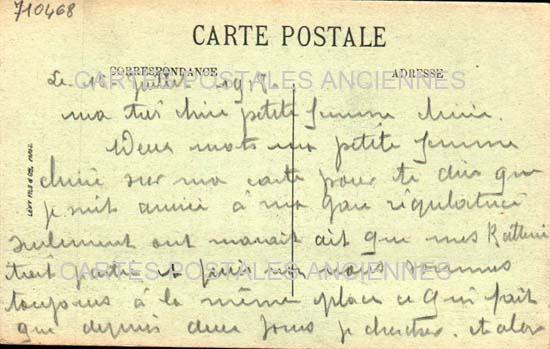 710468
CARTE POSTALE
CORRESPONDANCE
ADRESSE
CARTES POSTALES ANCIENNES
Le 18 juillet 1917.
ma tres chere petite femme cherie.
Deux mots ma petite femme
cherie sur ma carte pour te dire que
je suit arrivé à ma gare régulatrice
seulement ont mavait dit que mes
était partie et puis non nous sommes
toujours à la même place ce qui fait
que depuis deux jours je cherche. et alors
CARTES POSTALES ANCIENNES
LÉVY FILS & Cie, PARIS